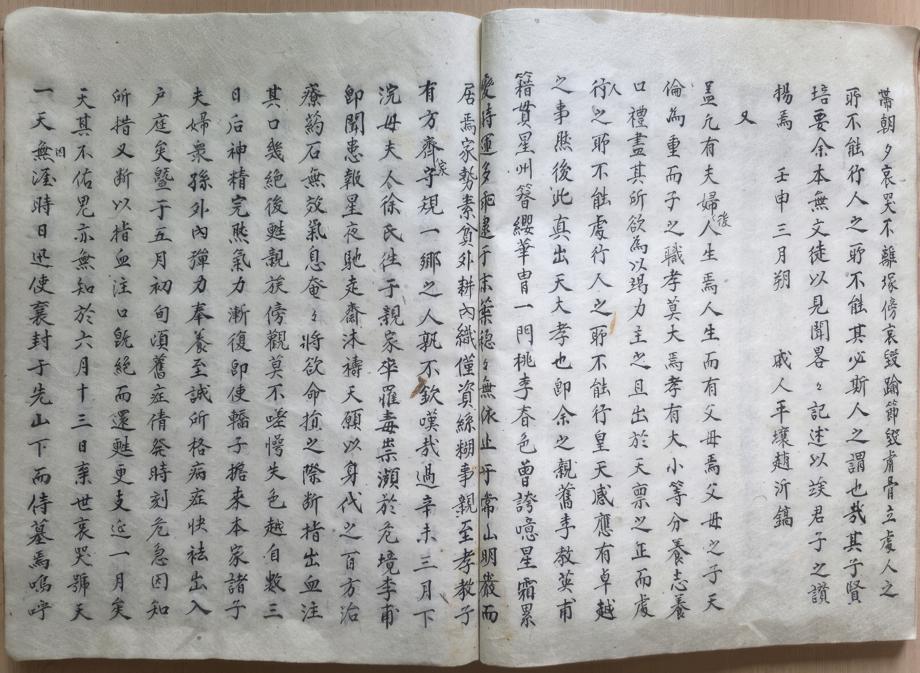 帶朝夕哀哭不離塚傍哀毀踰節毀膚骨立處人之
所不能行人之所不能其必斯人之謂也哉其子賢
培要余本無文徒以見聞畧々記述以竢君子之讚
揚焉　壬申三月朔　戚人平壤趙沂鎬
又
盖凡有夫婦後人生焉人生而有父母焉父母之子天
倫為重而子之職孝莫大焉孝有大小等分養志養
口禮盡其所欲為以竭力主之且出於天禀之正而處
人行之所不能處行人之所不能行皇天感應有卓越
之事然後此真出天大孝也卽余之親舊李教英甫
籍貫星州簪纓華冑一門桃李春色曾誇噫星霜累
變時運多乖逮于末葉穏々無依止于常山明巖而
居焉家勢素貧外耕內織僅資絲糊事親至孝教子
有方齊家守規一鄉之人孰不欽嘆哉過辛未三月下
浣母夫人徐氏徃于親家卒罹毒祟瀕於危境李甫
卽聞患報星夜馳走齋沐禱天願以身代之百方治
療藥石無效氣息奄々將欲命殞之際斷指出血注
其口幾絕後甦親族傍觀莫不嗟愕失色越自數三
日后神精完然氣力漸復卽使轎子擔來本家諸子
夫婦衆孫外內殫力奉養至誠所格病症快祛出入
戶庭矣曁于五月初旬須舊症倩發時刻危急因知
所措又斷以指血注口旣絕而還甦更支延一月矣
天其不佑鬼亦無知於六月十三日棄世哀哭號天
一天無涯因時日迅使襄封于先山下而侍墓焉嗚呼